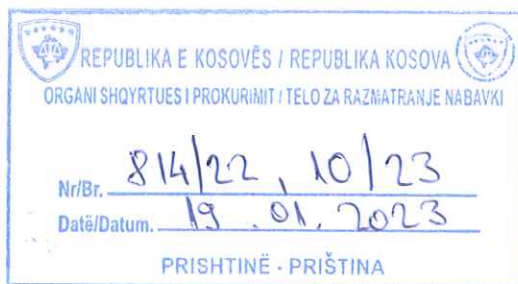 REPUBLIKA E KOSOVËS / REPUBLIKA KOSOVA
ORGANI SHQYRTUES I PROKURIMIT / TELO ZA RAZMATRANJE NABAVKI
Nr/Br. 814/22, 10/23
Datë/Datum. 19.01.2023
PRISHTINË - PRIŠTINA